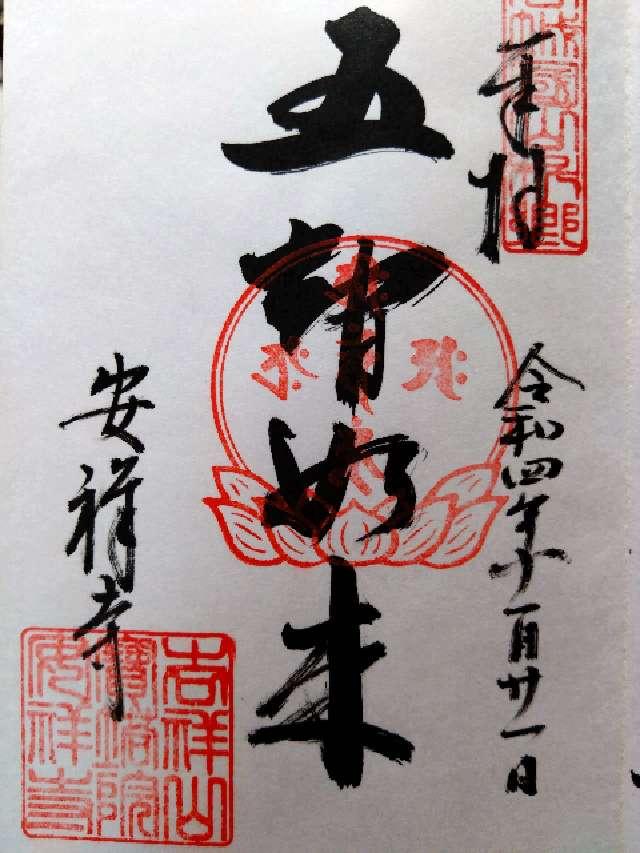 奉拝
令和四年十一月廿一日
五智如来
安祥寺
吉祥山
寶塔院
安祥寺